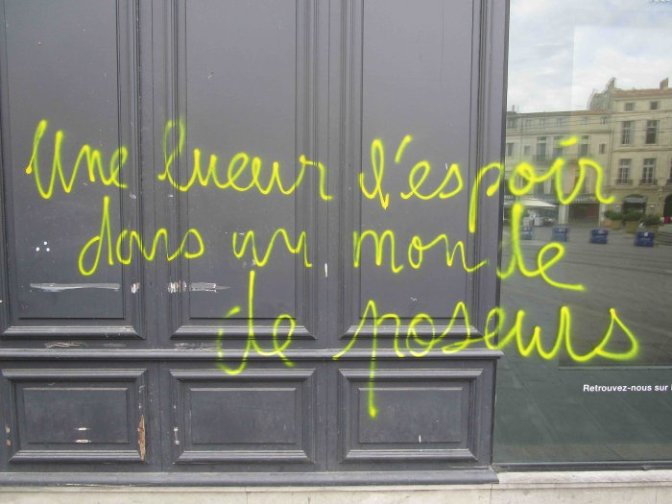 Une lueur d'espoir
dans un monde
de poseurs
Retrouvez-nous sur